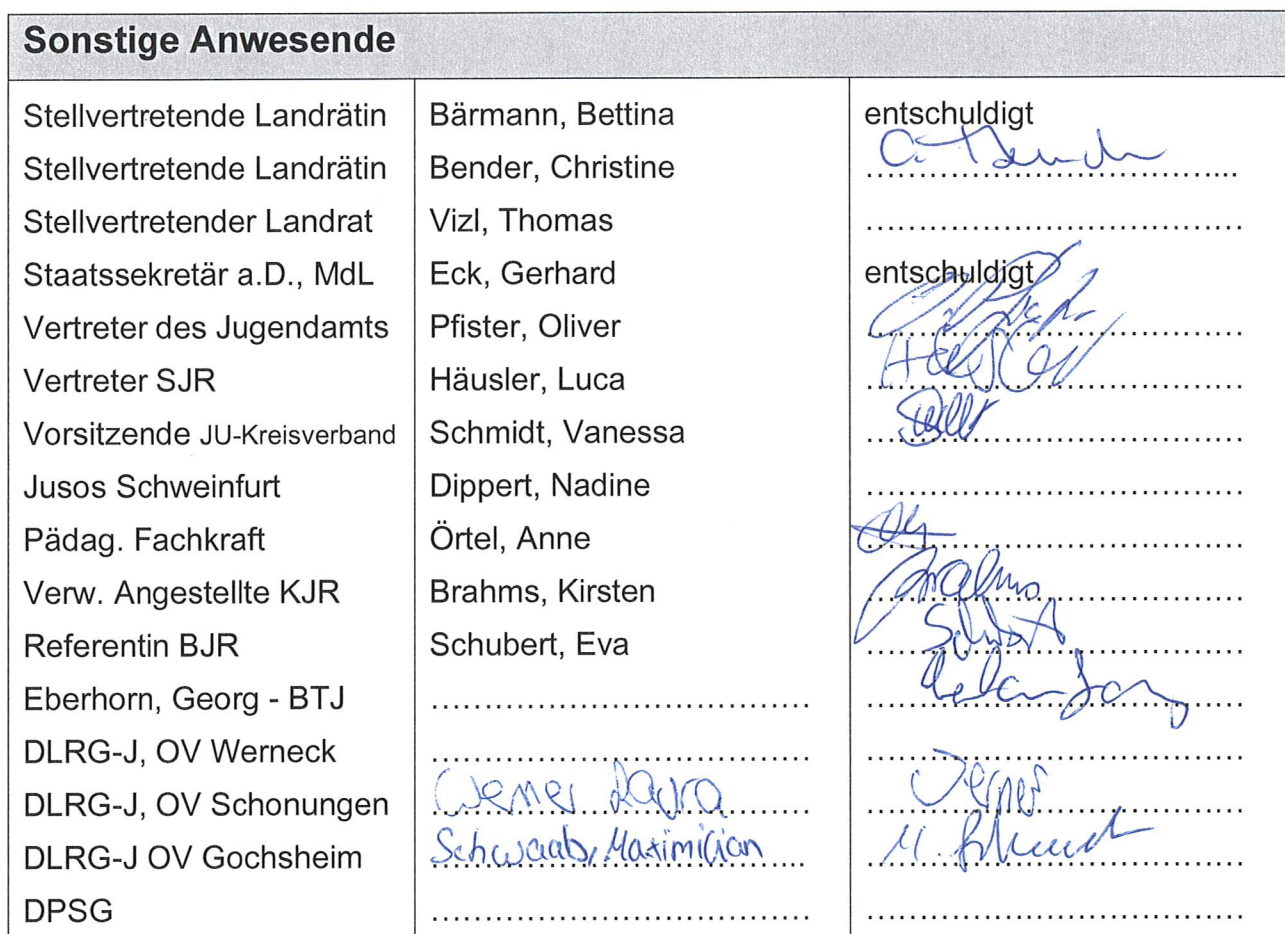 Sonstige Anwesende
Stellvertretende Landrätin Bärmann, Bettina entschuldigt
Stellvertretende Landrätin Bender, Christine C. Bender
Stellvertretender Landrat Vizl, Thomas
Staatssekretär a.D., MdL Eck, Gerhard entschuldigt
Vertreter des Jugendamts Pfister, Oliver
Vertreter SJR Häusler, Luca
Vorsitzende JU-Kreisverband Schmidt, Vanessa
Jusos Schweinfurt Dippert, Nadine
Pädag. Fachkraft Örtel, Anne
Verw. Angestellte KJR Brahms, Kirsten Brahms
Referentin BJR Schubert, Eva
Eberhorn, Georg - BTJ
DLRG-J, OV Werneck
DLRG-J, OV Schonungen Werner Laura Werner
DLRG-J OV Gochsheim Schwaab, Maximilian
DPSG